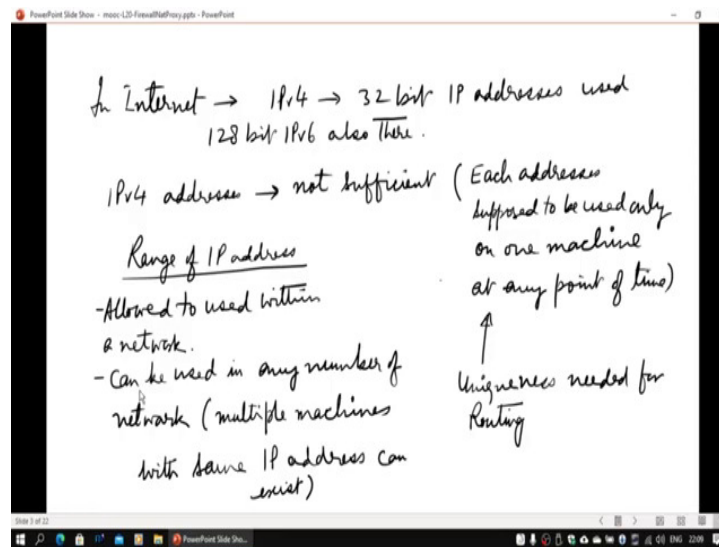 PowerPoint Slide Show - mooc-L20-FirewallNatProxy.pptx - PowerPoint
In Internet → IPv4 → 32 bit IP addresses used
128 bit IPv6 also There.
IPv4 addresses → not sufficient (Each addresses
supposed to be used only
on one machine
at any point of time)
Uniqueness needed for
Routing
Range of IP address
- Allowed to used within
a network.
- Can be used in any number of
network (multiple machines
with same IP address can
exist)
Slide 3 of 22
PowerPoint Slide Sho...
ENG 22:09